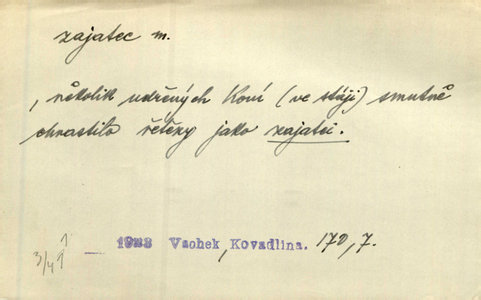 zajatec m.
, několik udřených koní (ve stáji) smutně
chrastilo řetězy jako zajatci.
1923 Vachek, Kovadlina. 170, 7.
3/4 1